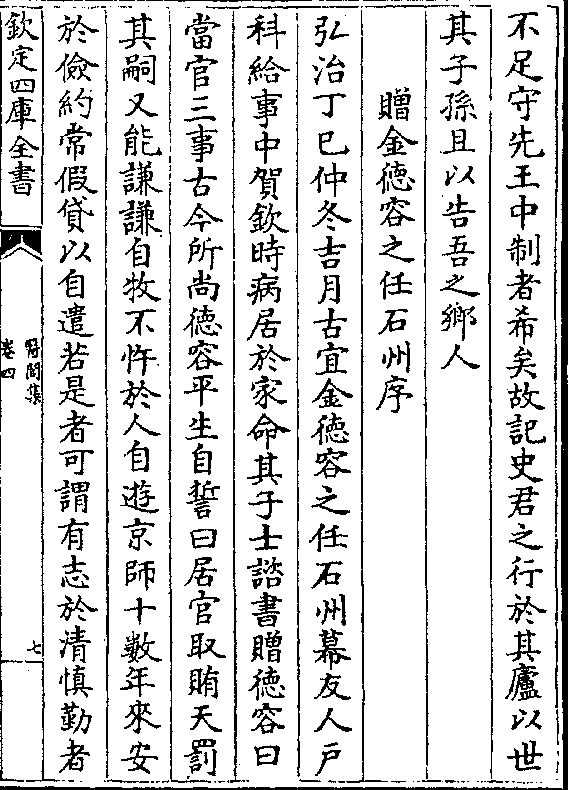 不足守先王中制者希矣故記史君之行於其廬以世
其子孫且以告吾之鄉人
贈金徳容之任石州序
弘治丁巳仲冬吉月古宜金徳容之任石州幕友人戶
科給事中賀欽時病居於家命其子士諮書贈徳容曰
當官三事古今所尚徳容平生自誓曰居官取賄天罰
其嗣又能謙謙自牧不忤於人自遊京師十數年來安
於儉約常假貸以自遣若是者可謂有志於清慎勤者
欽定四庫全書
醫閭集
卷四
七